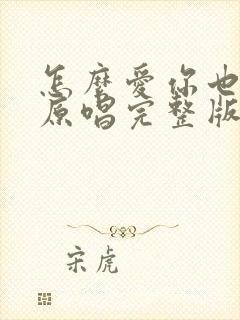 怎麼愛你也
原唱完整版
宋虎